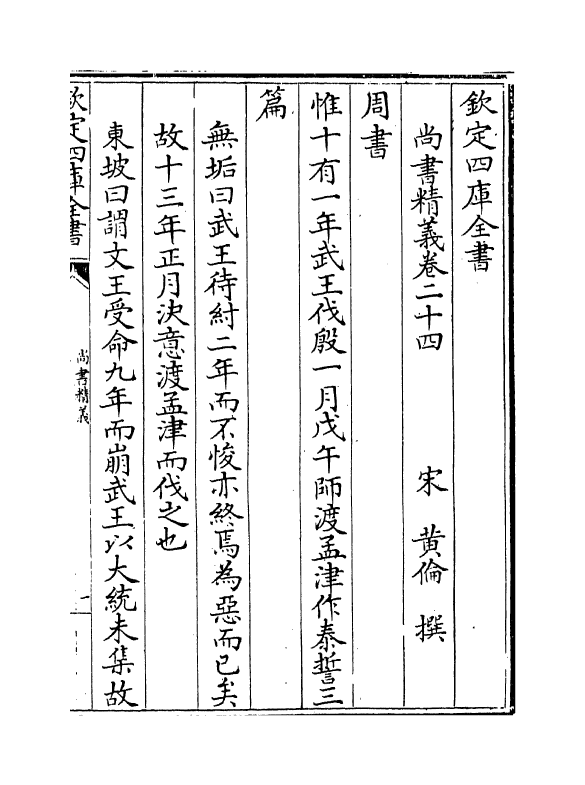 欽定四庫全書
尚書精義卷二十四　宋　黃倫　撰
周書
惟十有一年武王伐殷一月戊午師渡孟津作泰誓三
篇
無垢曰武王待紂二年而不悛亦終焉為惡而已矣
故十三年正月決意渡孟津而伐之也
東坡曰謂文王受命九年而崩武王以大統未集故
欽定四庫全書
尚書精義
一